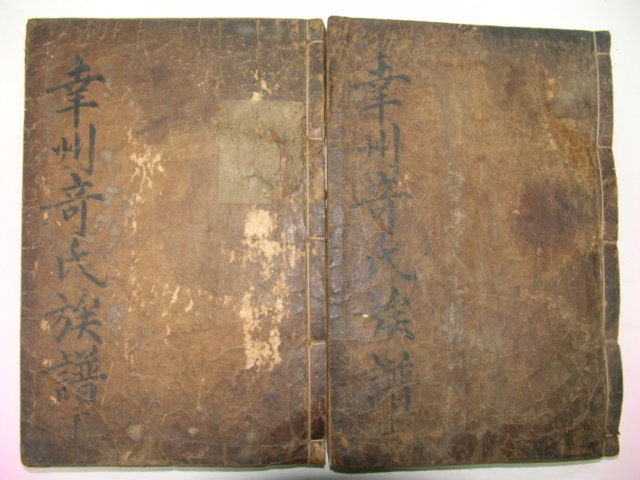 幸州奇氏族譜 上
幸州奇氏族譜 下